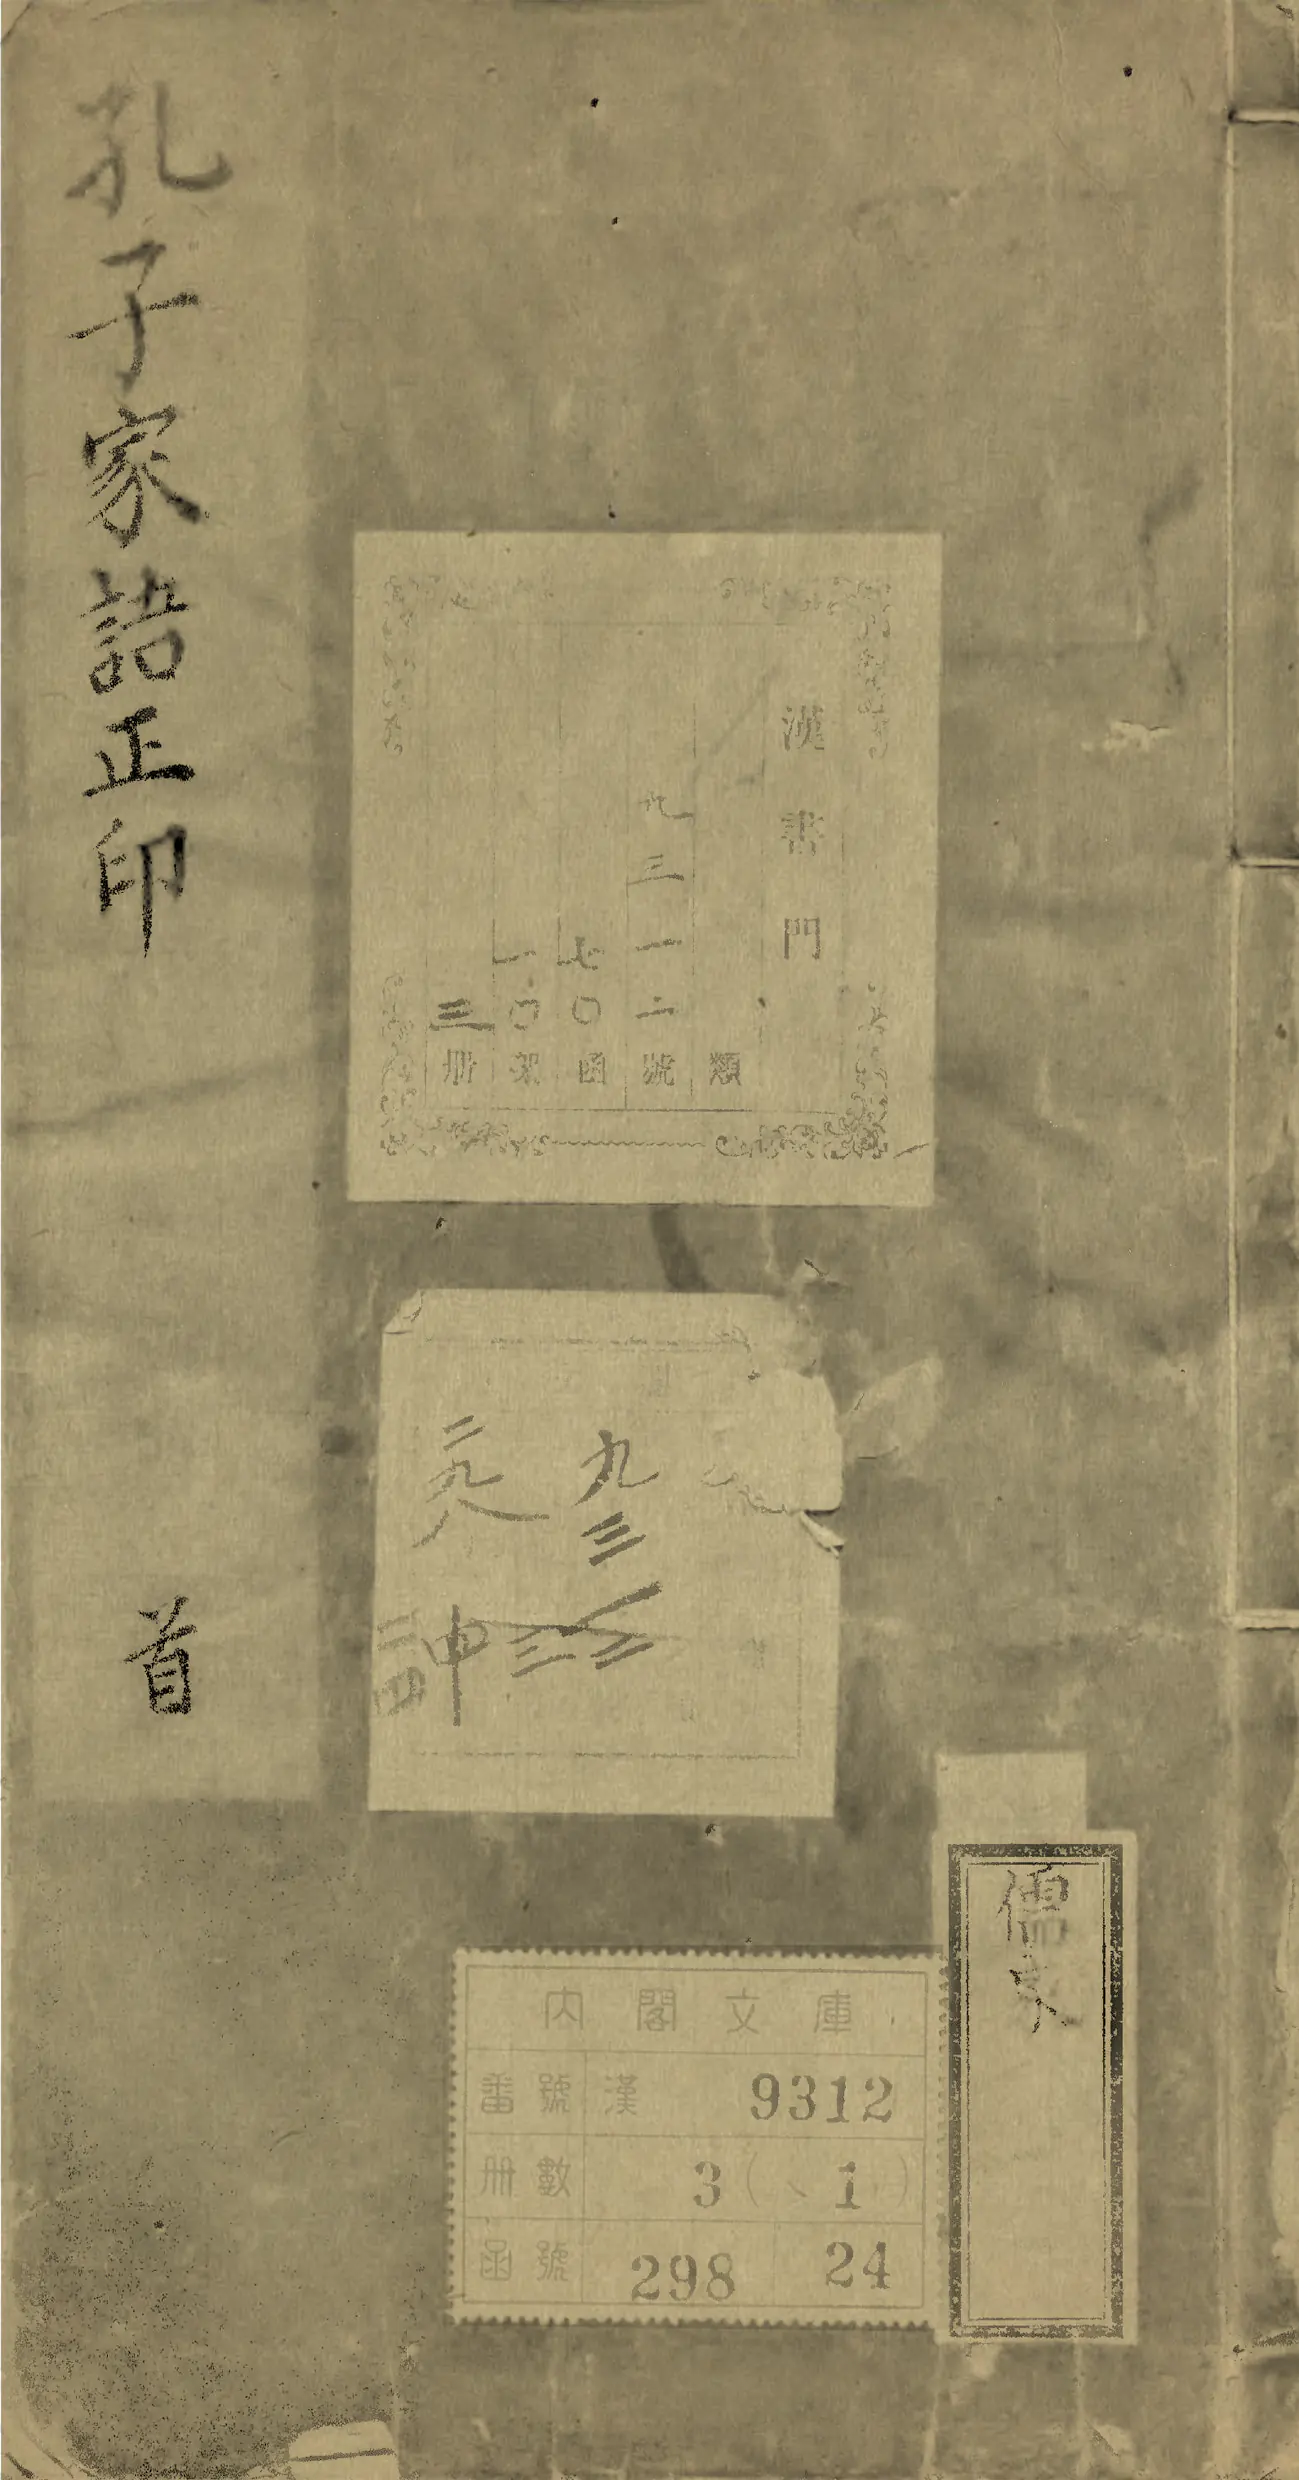 孔子家語正印
首
漢書門
類
九三一二號
七〇函
一〇架
三册
九三一二
二九八
二四
儒家
内閣文庫
番號 漢 9312
册數 3 ( 1 )
函號 298 24